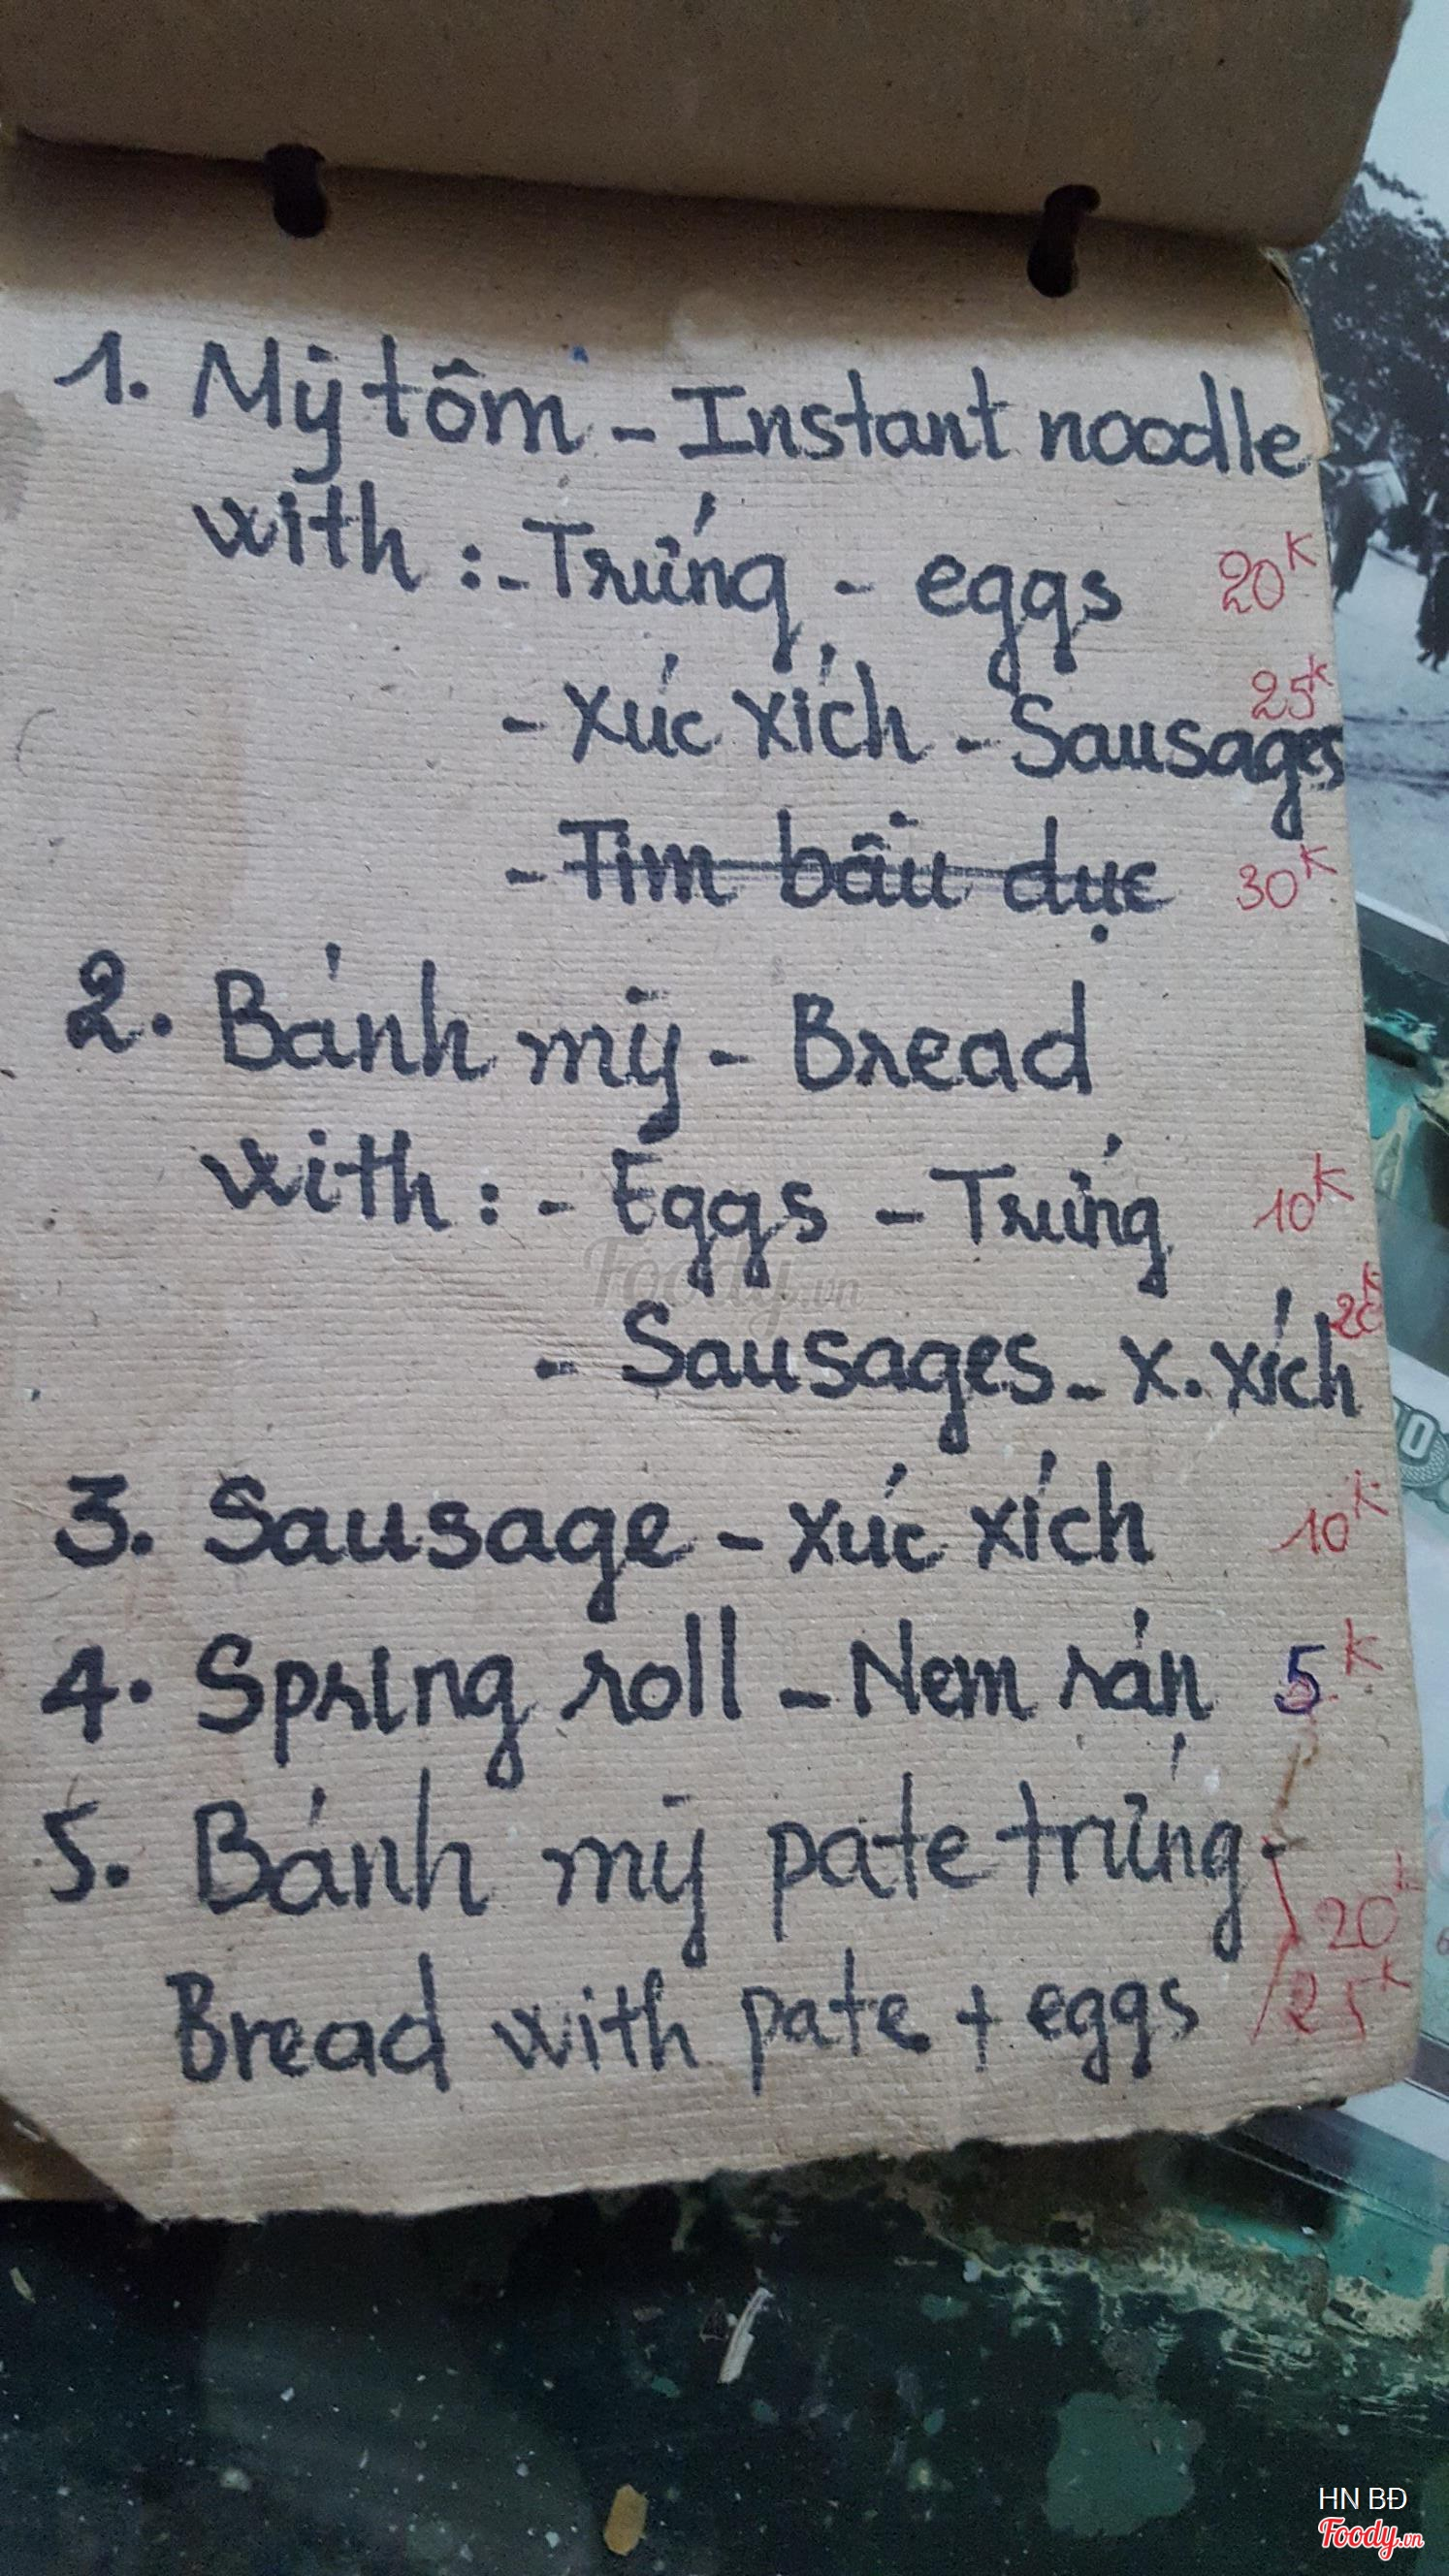 1. Mỳ tôm - Instant noodle
with : - Trứng - eggs 20K
- Xúc xích - Sausages 25K
- Tim bầu dục 30K
2. Bánh mỳ - Bread
with : - Eggs - Trứng 10K
- Sausages - X. xích 20K
3. Sausage - Xúc xích 10K
4. Spring roll - Nem rán 5K
5. Bánh mỳ pate trứng - 20K
Bread with pate + eggs 25K
Foody.vn
HN BĐ
Foody.vn